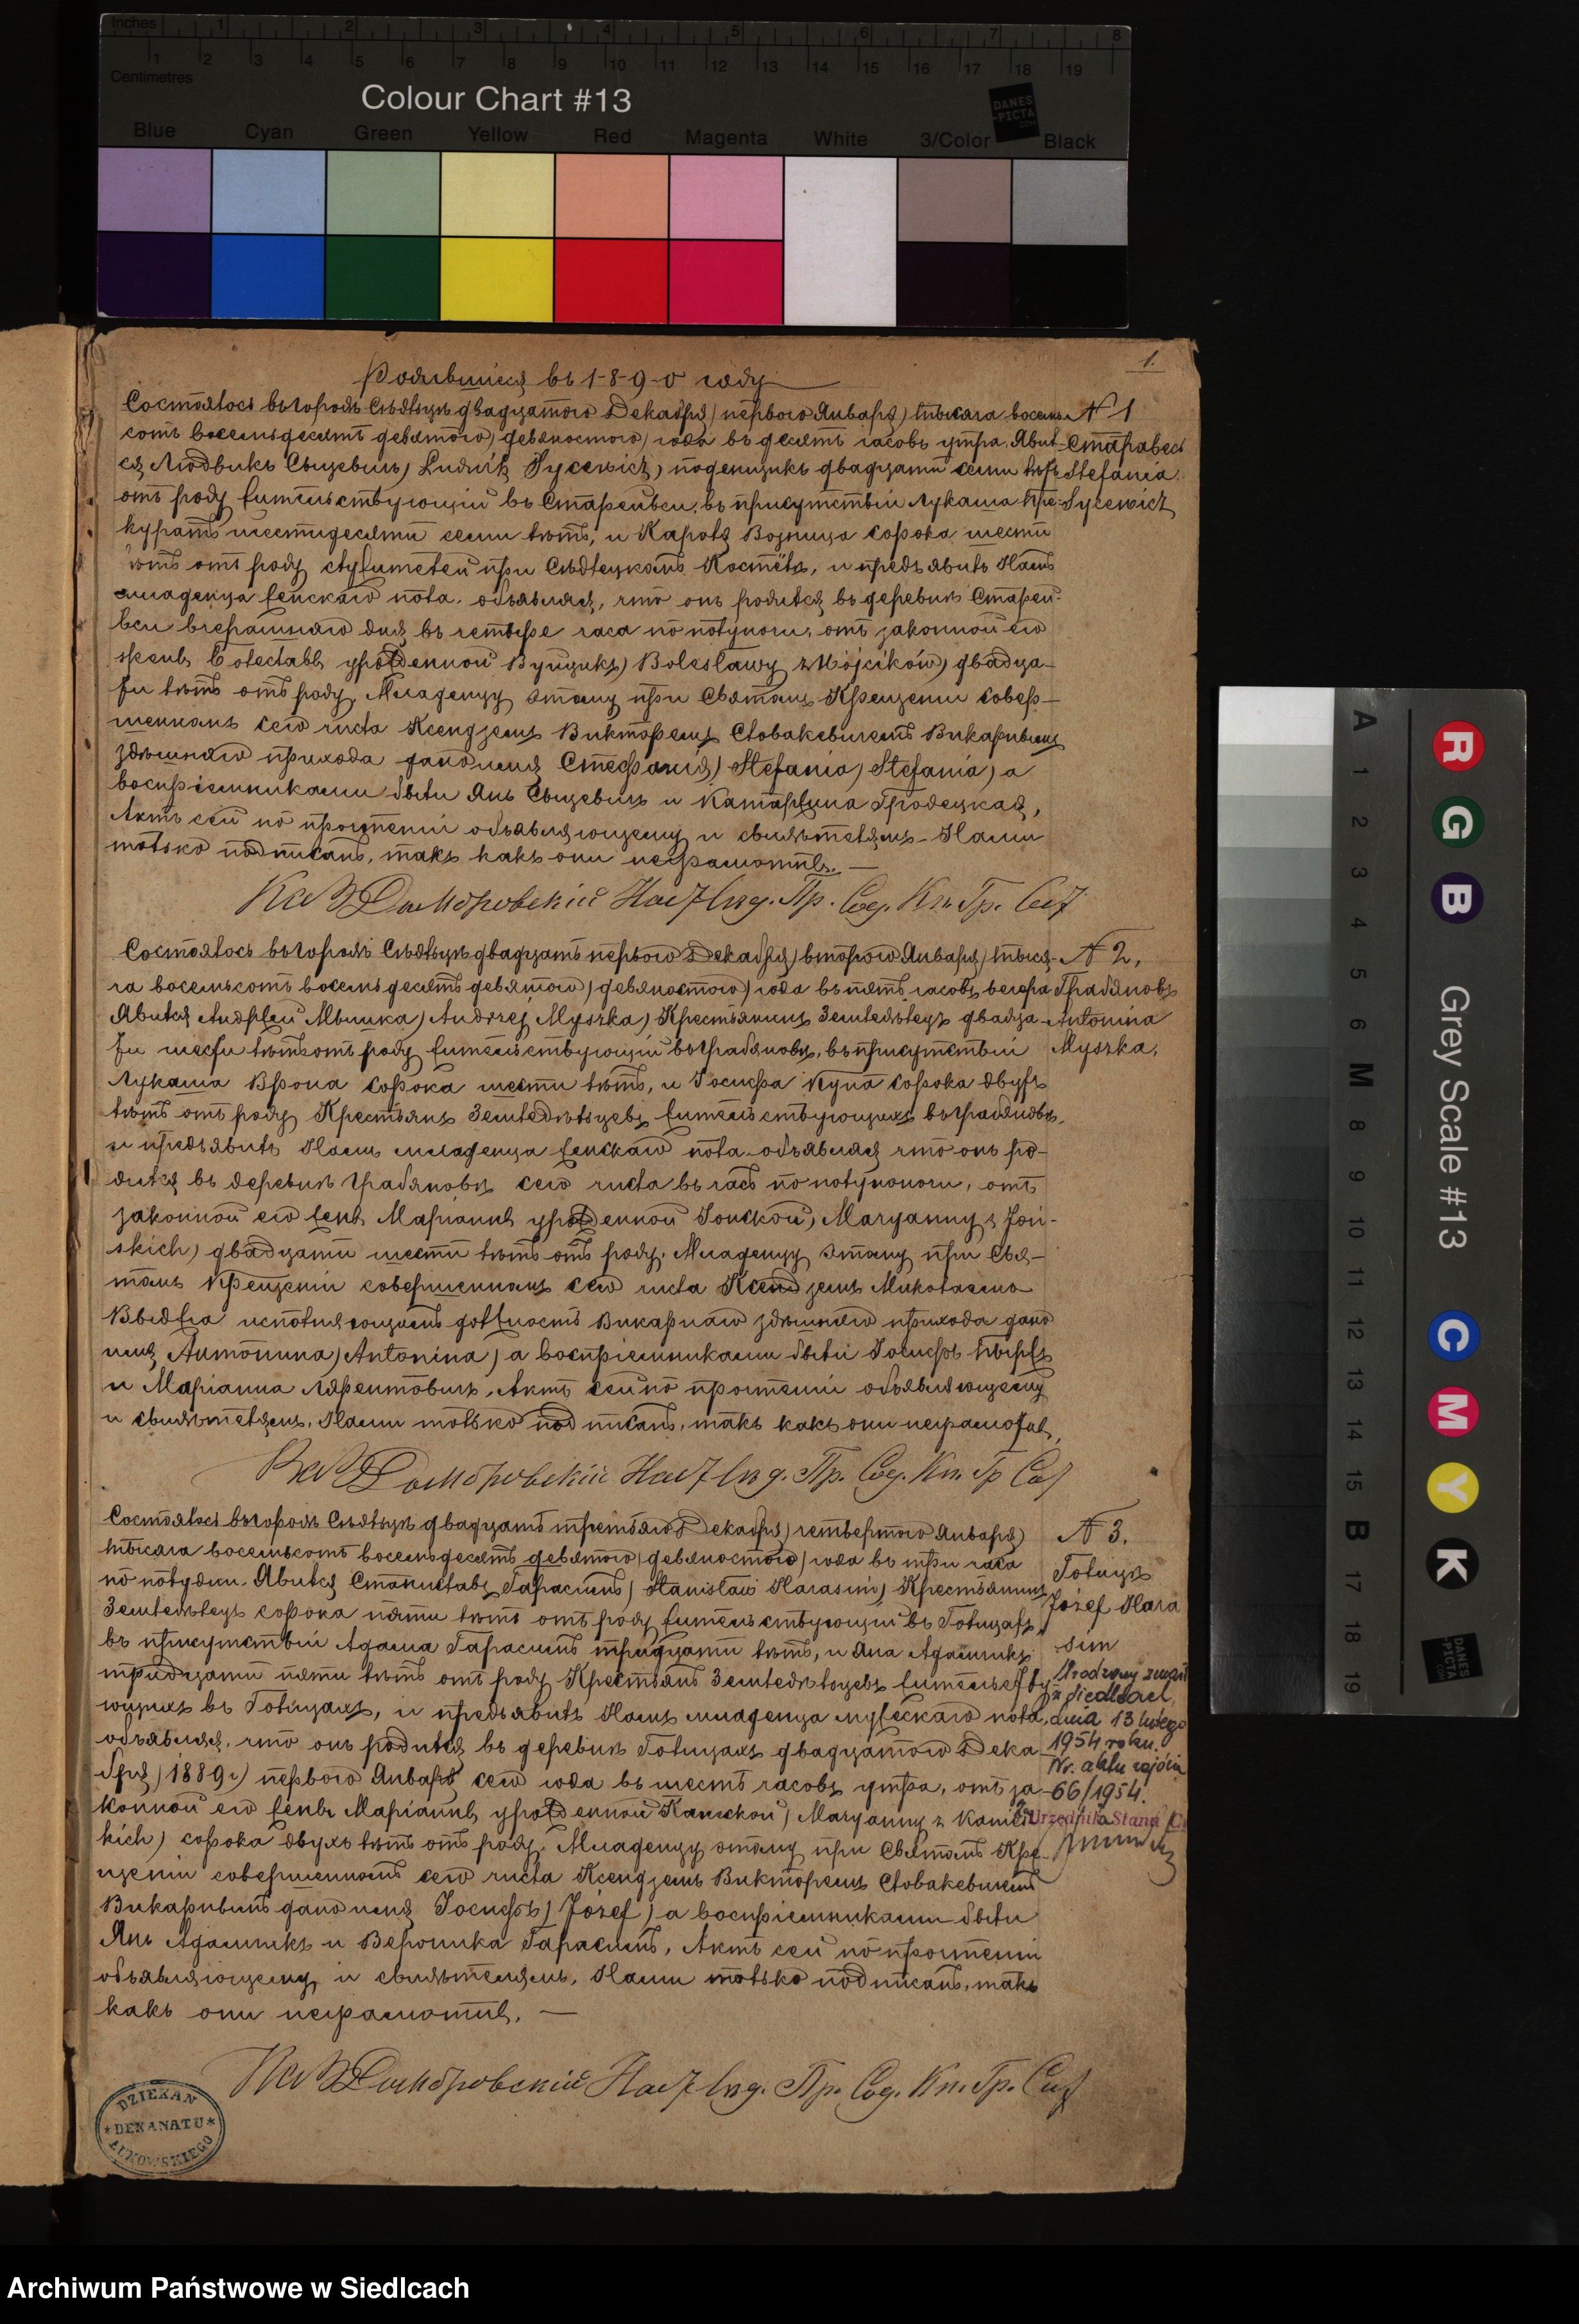 Inches 1 2 3 4 5 6 7 8
Centimetres 1 2 3 4 5 6 7 8 9 10 11 12 13 14 15 16 17 18 19
Colour Chart #13
DANES
-PICTA
.COM
Blue Cyan Green Yellow Red Magenta White 3/Color Black
1.
Родившіеся въ 1890 году
Состоялось въ городѣ Сѣдльцѣ двадцатого Декабря) перваго Января) тысяча восемь-
сотъ восемьдесятъ девятого) девяностого) года въ десять часовъ утра. Явил-
ся Людвикъ Сыцевичъ) Ludwik Sycewicz) поденщикъ двадцати семи лѣтъ
отъ роду жительствующій въ Старейвси, въ присутствіи Лукаша
шестидесяти семи лѣтъ, и Кароля Возница сорока шести
лѣтъ отъ роду служителей при Сѣдлецкомъ Костёлѣ, и предъявилъ Намъ
младенца женскаго пола, объявляя, что онъ родился въ деревнѣ Старей-
вси вчерашняго дня въ четыре часа по полуночи, отъ законной его
жены Болеславы урожденной Вуйцикъ) Bolesławy z Wójcików) двадца-
ти лѣтъ отъ роду. Младенцу этому при Святомъ Крещеніи совер-
шенномъ сего числа Ксендземъ Викторемъ Словакевичемъ Викарнымъ
здѣшняго прихода дано имя Стефанія) Stefania) Stefania) а
воспріемниками были Янъ Сыцевичъ и Катаржина Гродецкая,
Актъ сей по прочтеніи объявляющему и свидѣтелямъ Нами
только подписанъ, такъ какъ они неграмотны. —
№ 1
Stefania
Sycewicz
Домбровскій Пр. Сод. Кн. Гр. Сос
Состоялось въ городѣ Сѣдльцѣ двадцать перваго Декабря) второго Января) тыся-
ча восемьсотъ восемьдесятъ девятого) девяностого) года въ пять часовъ вечера
Явился Андржей Мышка) Andrzej Myszka) Крестьянинъ Земледѣлецъ двадца-
ти шести лѣтъ отъ роду жительствующій въ Грабяновѣ, въ присутствіи
Лукаша Врона сорока шести лѣтъ, и Іосифа Купа сорока двухъ
лѣтъ отъ роду Крестьянъ Земледѣльцевъ жительствующихъ въ Грабяновѣ,
и предъявилъ Намъ младенца женскаго пола объявляя что онъ ро-
дился въ деревнѣ Грабяновѣ сего числа въ часъ по полуночи, отъ
законной его жены Маріанны урожденной Іонской) Maryanny z Joń-
skich) двадцати шести лѣтъ отъ роду. Младенцу этому при Свя-
томъ Крещеніи совершенномъ сего числа Ксендземъ Миколаемъ
исполняющимъ должность Викарнаго здѣшняго прихода дано
имя Антонина) Antonina) а воспріемниками были Іосифъ
и Маріанна Лярентовичъ. Актъ сей по прочтеніи объявляющему
и свидѣтелямъ, Нами только подписанъ, такъ какъ они неграмотны.
№ 2.
Грабяновъ
Antonina
Myszka.
Домбровскій Пр. Сод. Кн. Гр Сос
Состоялось въ городѣ Сѣдльцѣ двадцать третьяго Декабря) четвертого Января)
тысяча восемьсотъ восемьдесятъ девятого) девяностого) года въ три часа
по полудни. Явился Станиславъ Гарасимъ) Stanisław Harasim) Крестьянинъ
Земледѣлецъ сорока пяти лѣтъ отъ роду жительствующій въ Голицахъ,
въ присутствіи Адама Гарасимъ тридцати лѣтъ, и Яна Адамчикъ
тридцати пяти лѣтъ отъ роду Крестьянъ Земледѣльцевъ жительству-
ющихъ въ Голицахъ, и предъявилъ Намъ младенца мужескаго пола,
объявляя, что онъ родился въ деревнѣ Голицахъ двадцатого Дека-
бря) 1889 г.) перваго Января сего года въ шесть часовъ утра, отъ за-
конной его жены Маріанны урожденной Каминской) Maryanny z Kamiń-
kich) сорока двухъ лѣтъ отъ роду. Младенцу этому при Святомъ Кре-
щеніи совершенномъ сего числа Ксендземъ Викторемъ Словакевичемъ
Викарнымъ дано имя Іосифъ) Józef) а воспріемниками были
Янъ Адамчикъ и Вероника Гарасимъ, Актъ сей по прочтеніи
объявляющему и свидѣтелямъ, Нами только подписанъ, такъ
какъ они неграмотны. —
№ 3.
Голицѣ
Józef Hara
sim
Urodzony zmarł
w Siedlcach,
dnia 13 lutego
1954 roku.
Nr. aktu zejścia
66/1954.
Urzędnika Stanu C.
Домбровскій Пр. Сод. Кн. Гр. Сос
DZIEKAN
*DEKANATU*
ŁUKOWSKIEGO
R G B C M Y K
Grey Scale #13
A 1 2 3 4 5 6 M 8 9 10 11 12 13 14 15 B 17 18 19
DANES
-PICTA
.COM
Archiwum Państwowe w Siedlcach